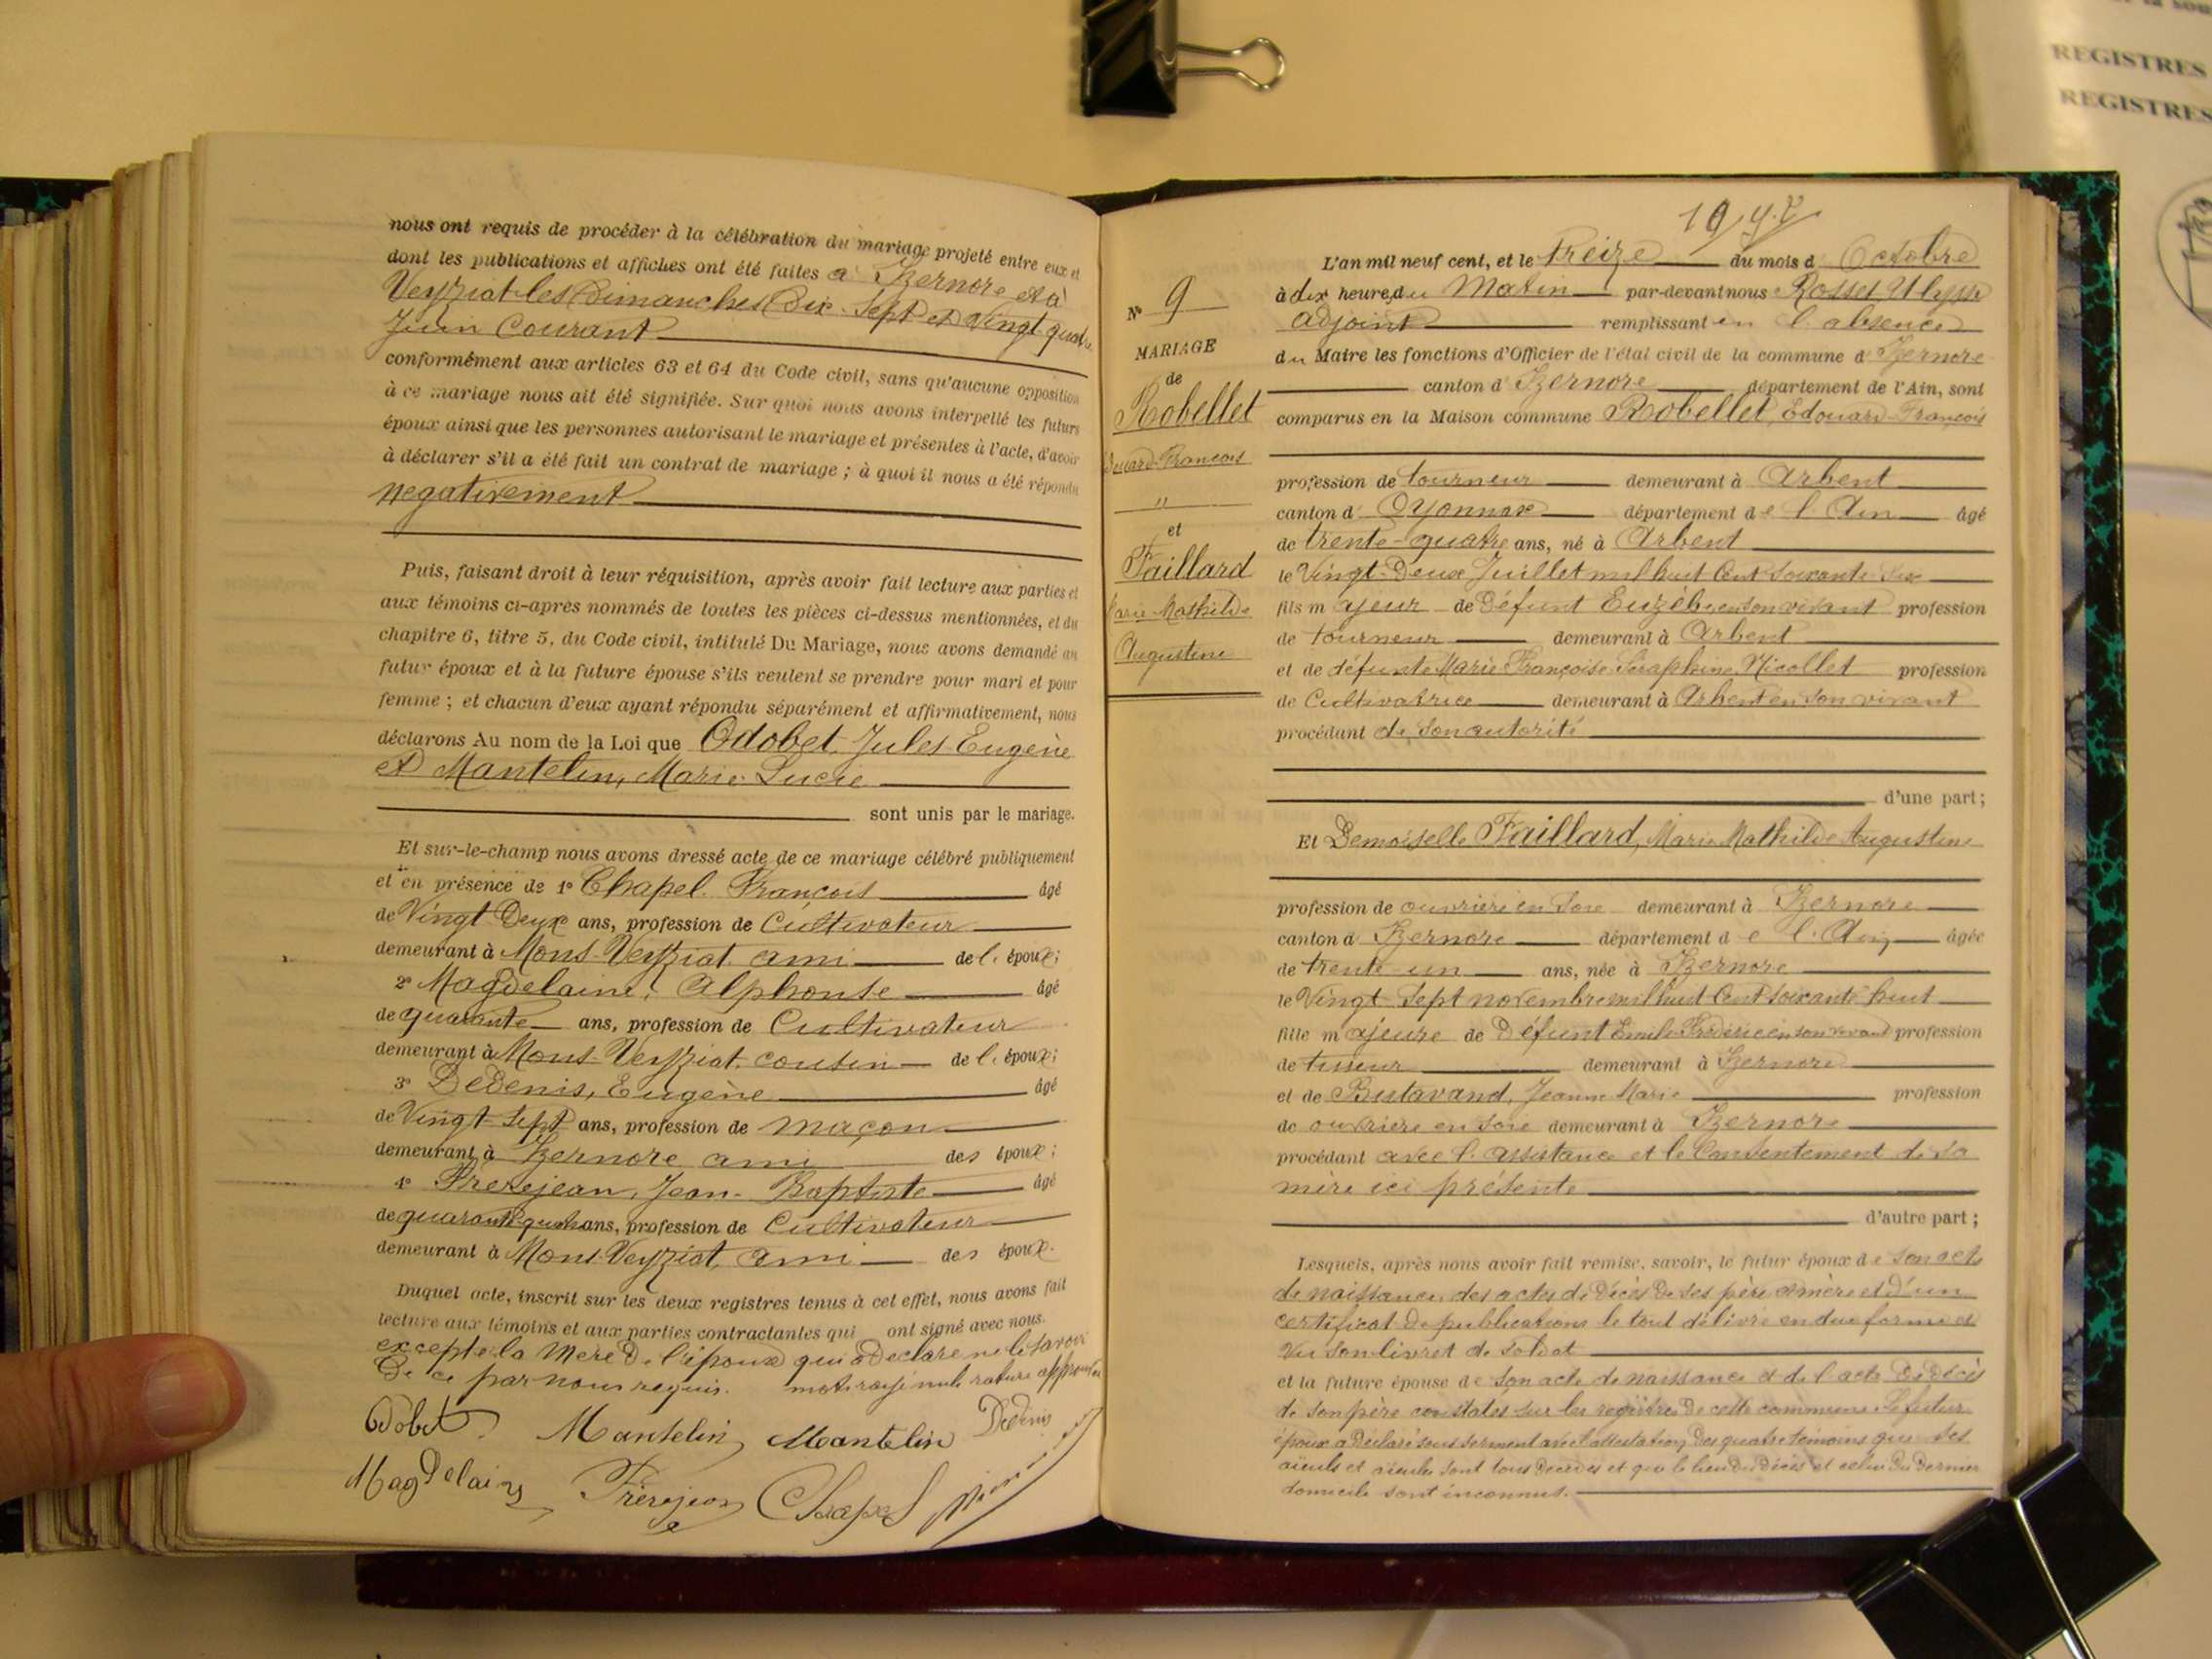 nous ont requis de procéder à la célébration du mariage projeté entre eux et
dont les publications et affiches ont été faites à Izernore et à
Veyziat les Dimanches Dix-Sept et Vingt quatre
Juin Courant
conformément aux articles 63 et 64 du Code civil, sans qu'aucune opposition
à ce mariage nous ait été signifiée. Sur quoi nous avons interpellé les futurs
époux ainsi que les personnes autorisant le mariage et présentes à l'acte, d'avoir
à déclarer s'il a été fait un contrat de mariage ; à quoi il nous a été répondu
négativement
Puis, faisant droit à leur réquisition, après avoir fait lecture aux parties et
aux témoins ci-après nommés de toutes les pièces ci-dessus mentionnées, et du
chapitre 6, titre 5, du Code civil, intitulé Du Mariage, nous avons demandé au
futur époux et à la future épouse s'ils veulent se prendre pour mari et pour
femme ; et chacun d'eux ayant répondu séparément et affirmativement, nous
déclarons Au nom de la Loi que Odobet, Jules-Eugène
et Mantelin, Marie-Lucie
sont unis par le mariage.
Et sur-le-champ nous avons dressé acte de ce mariage célébré publiquement
et en présence de 1º Chapel. François âgé
de Vingt Deux ans, profession de Cultivateur
demeurant à Mons-Veyziat. ami de l. époux;
2º Magdelaine, Alphonse âgé
de quarante ans, profession de Cultivateur
demeurant à Mons-Veyziat. cousin de l. époux;
3º Dedenis, Eugène âgé
de Vingt-Sept ans, profession de maçon
demeurant à Izernore ami des époux;
4º Frèrejean, Jean-Baptiste âgé
de quarante quatre ans, profession de Cultivateur
demeurant à Mons-Veyziat, ami des époux.
Duquel acte, inscrit sur les deux registres tenus à cet effet, nous avons fait
lecture aux témoins et aux parties contractantes qui ont signé avec nous.
excepté la Mère De l'époux qui a Déclaré ne le savoir
De ce par nous requis. mots rayé nuls rature
Odobet Mantelin Mantelin Dedenis
Magdelaine Frèrejean Chapel
19
L'an mil neuf cent, et le Treize du mois d Octobre
à dix heures du Matin par-devant nous Rosset Ulysse
adjoint remplissant en l'absence
du Maire les fonctions d'Officier de l'état civil de la commune d Izernore
canton d Izernore département de l'Ain, sont
comparus en la Maison commune Robellet, Edouard-François
Nº 9
MARIAGE
de
Robellet
Edouard-François
"
et
Faillard
Marie Mathilde
Augustine
profession de tourneur demeurant à Arbent
canton d' Oyonnax département de l'Ain âgé
de trente-quatre ans, né à Arbent
le Vingt-Deux Juillet mil huit Cent Soixante Six
fils majeur de Défunt Euzèbe en son vivant profession
de tourneur demeurant à Arbent
et de défunte Marie Françoise Séraphine Nicollet profession
de Cultivatrice demeurant à Arbent en son vivant
procédant de son autorité
d'une part;
Et Demoiselle Faillard, Marie Mathilde Augustine
profession de ouvrière en Soie demeurant à Izernore
canton d Izernore département de l'Ain âgée
de trente-un ans, née à Izernore
le Vingt Sept novembre mil huit Cent soixante huit
fille majeure de Défunt Emile-Frédéric en son vivant profession
de tisseur demeurant à Izernore
et de Bustavand, Jeanne Marie profession
de ouvrière en Soie demeurant à Izernore
procédant avec l'assistance et le Consentement de sa
mère ici présente
d'autre part;
Lesquels, après nous avoir fait remise, savoir, le futur époux de son acte
de naissance, des actes de Décès De ses père et mère et D'un
certificat De publications le tout délivré en due forme et
Vu son livret de soldat
et la future épouse de son acte de naissance et de l'acte De décès
de son père constatés sur les registres De cette commune. Le futur
époux a Déclaré sous serment avec l'attestation Des quatre témoins que ses
aïeuls et aïeules sont tous Décédés et que le lieu Du Décès et celui Du Dernier
domicile sont inconnus.
REGISTRES
REGISTRES